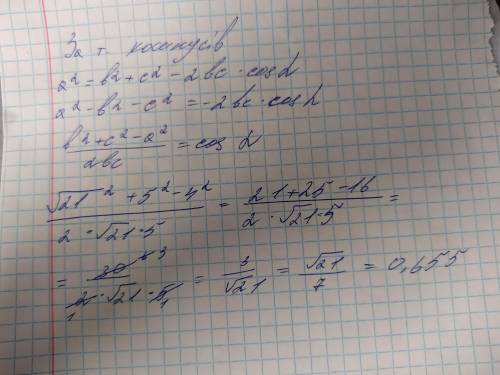 За т. косинусів
a² = b² + c² - 2bc · cos α
a² - b² - c² = -2bc · cos α
(b² + c² - a²) / 2bc = cos α
(√21² + 5² - 4²) / (2 · √21 · 5) = (21 + 25 - 16) / (2 · √21 · 5) =
= 30 3 / (2 1 · √21 · 5 1) = 3/√21 = √21/7 = 0,655